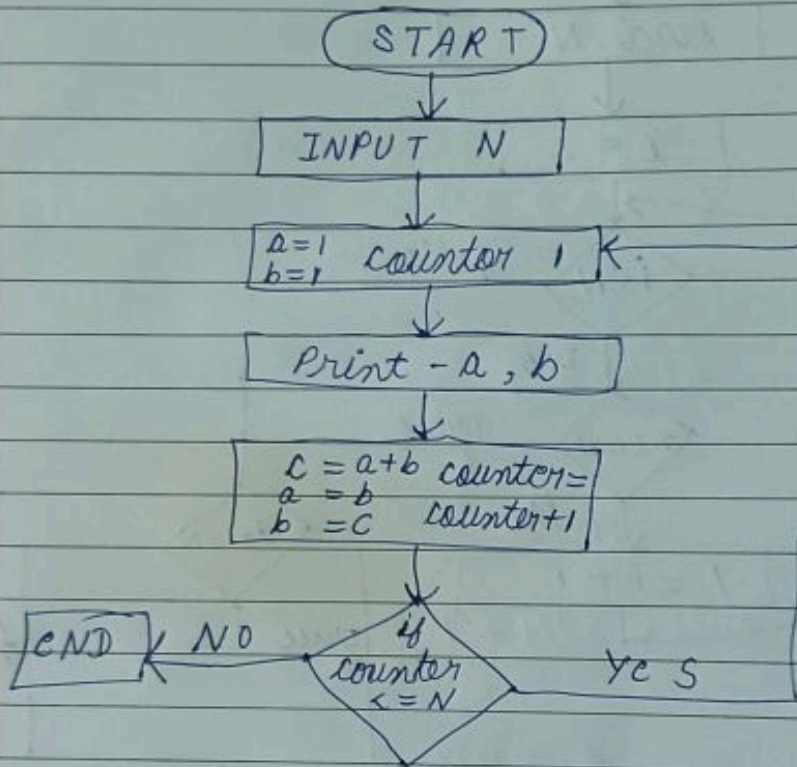 START
INPUT N
a=1
b=1 counter 1
Print - a, b
c = a+b counter=
a = b
b = c counter+1
if
counter
<= N
END NO
Yes